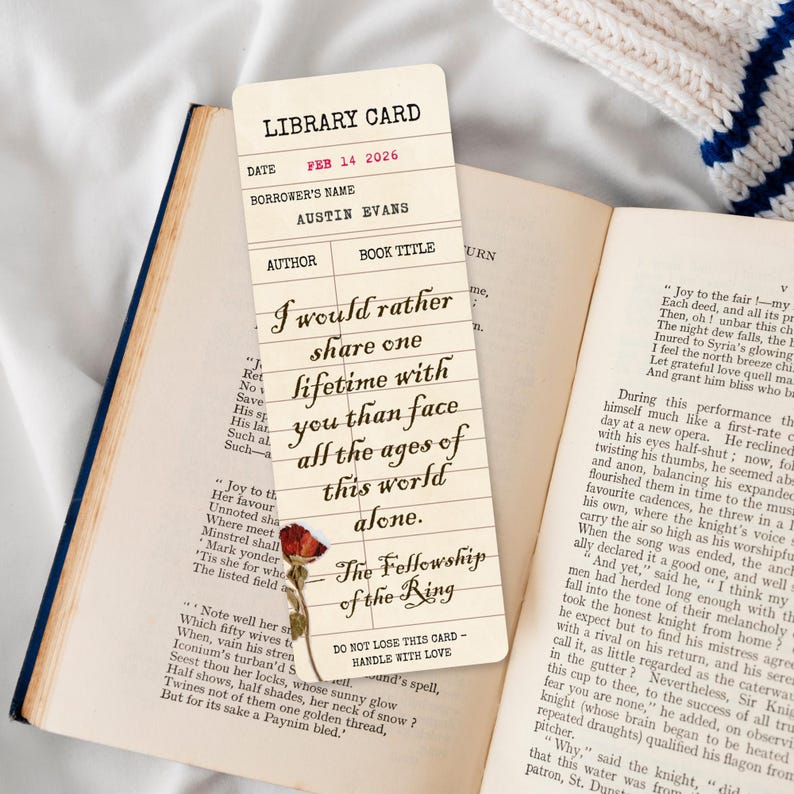 LIBRARY CARD
DATE FEB 14 2026
BORROWER'S NAME
AUSTIN EVANS
AUTHOR BOOK TITLE
I would rather
share one
lifetime with
you than face
all the ages of
this world
alone.
— The Fellowship
of the Ring
DO NOT LOSE THIS CARD –
HANDLE WITH LOVE
TURN
me,
"Jo
Ret
No w
Save
His sp
His lan
Such, al
Such—a
"Joy to the
Her favour
Unnoted sha
Where meet
Minstrel shall
'Mark yonder
'Tis she for who
The listed field a
"'Note well her sm
Which fifty wives to
When, vain his stren
Iconium's turban'd S oud's spell,
Seest thou her locks, whose sunny glow
Half shows, half shades, her neck of snow?
Twines not of them one golden thread,
But for its sake a Paynim bled.'
v
"Joy to the fair!—my
Each deed, and all its pr
Then, oh! unbar this ch
The night dew falls, the h
Inured to Syria's glowing
I feel the north breeze chi
Let grateful love quell ma
And grant him bliss who br
During this performance th
himself much like a first-rate c
day at a new opera. He reclined
with his eyes half-shut; now, fol
twisting his thumbs, he seemed abs
and anon, balancing his expanded
flourished them in time to the musi
favourite cadences, he threw in a l
his own, where the knight's voice
carry the air so high as his worshipfu
When the song was ended, the anch
ally declared it a good one, and well
"And yet," said he, "I think my
men had herded long enough with th
fall into the tone of their melancholy
took the honest knight from home?
he expect but to find his mistress agree
with a rival on his return, and his seren
call it, as little regarded as the caterwau
in the gutter? Nevertheless, Sir Knig
this cup to thee, to the success of all tru
fear you are none," he added, on observin
knight (whose brain began to be heated
repeated draughts) qualified his flagon from
pitcher.
"Why," said the knight, "did
that this water was from the
patron, St. Dunst